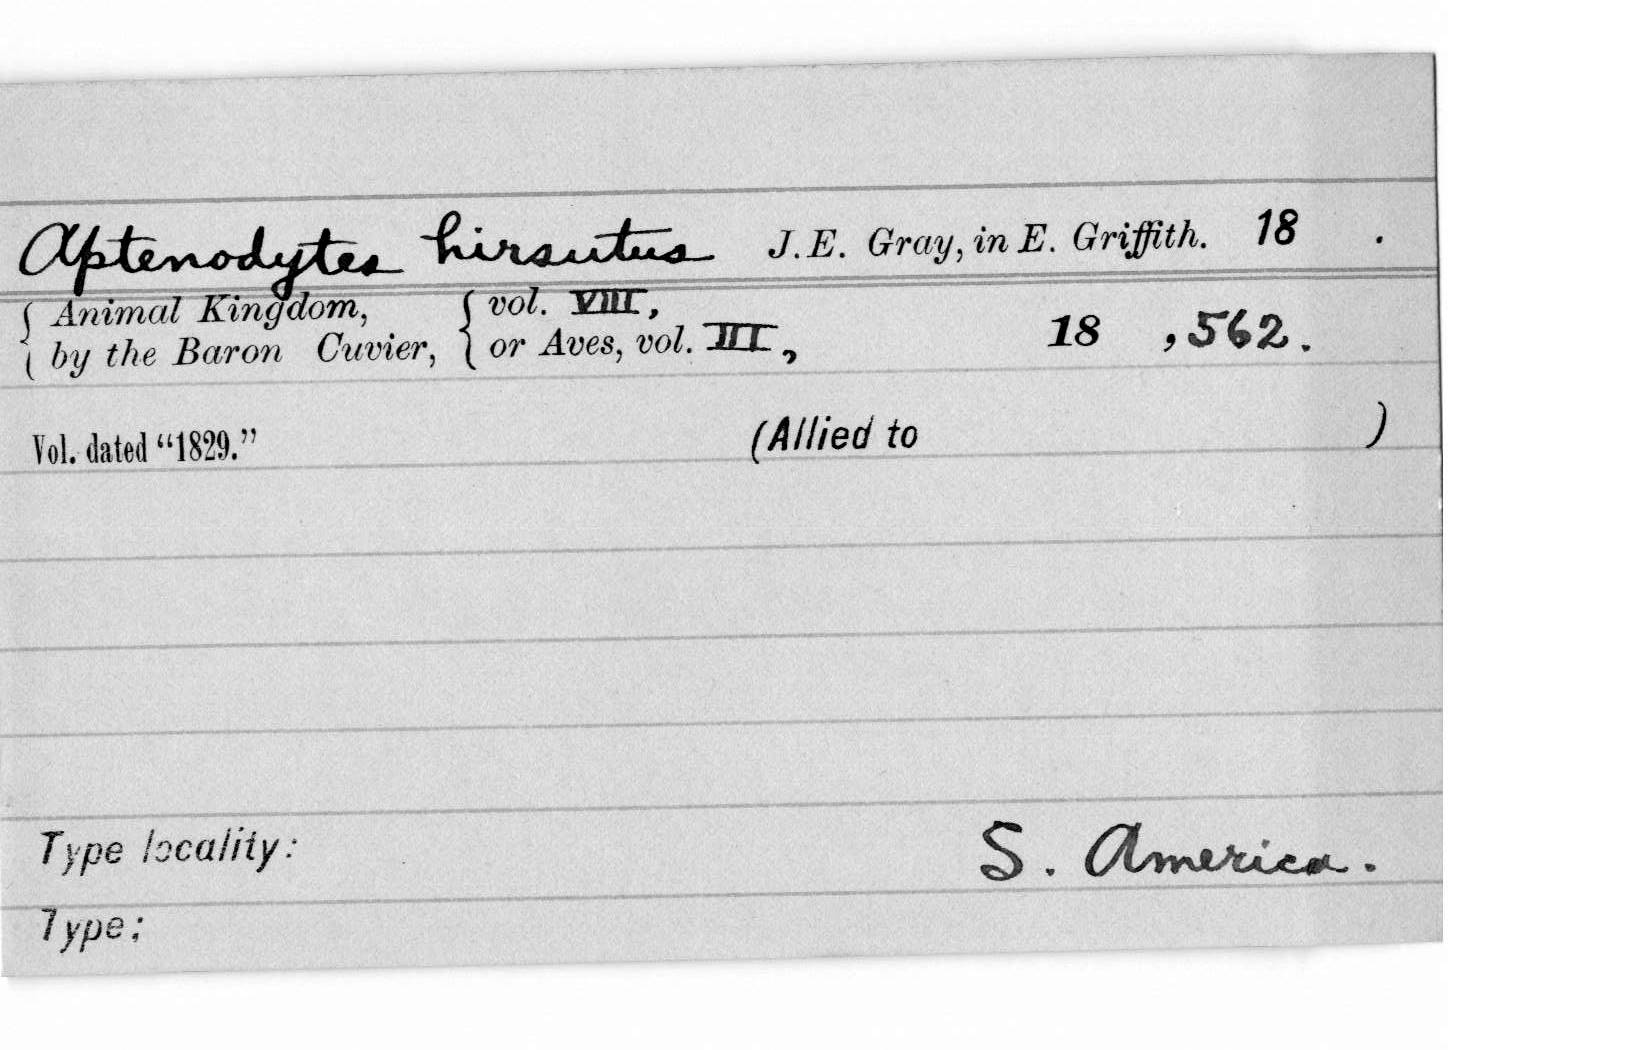 Aptenodytes hirsutus J. E. Gray, in E. Griffith. 18 .
{ Animal Kingdom, { vol. VIII,
{ by the Baron Cuvier, { or Aves, vol. III, 18 , 562.
Vol. dated “1829.” (Allied to )
Type locality: S. America.
Type: